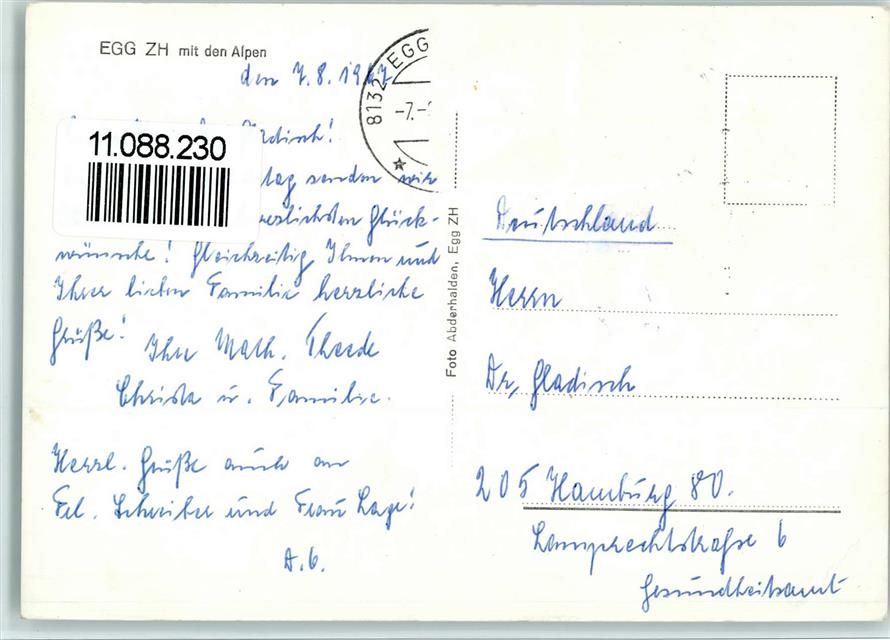 EGG ZH mit den Alpen
den 7.8.1967
8132 EGG
-7.-
11.088.230
tag senden wir
herzlichsten Glück-
wünsche! Gleichzeitig Ihnen und
Ihrer lieben Familie herzliche
Grüße!
Ihre Math. Theede
Christa u. Familie.
Herzl. Grüße auch an
Frl. Schreiber und Frau Lage!
D. O.
Foto Abderhalden, Egg ZH
Deutschland
Herrn
Dr. Gladisch
205 Hamburg 80.
Lamprechtstraße 6
Gesundheitsamt